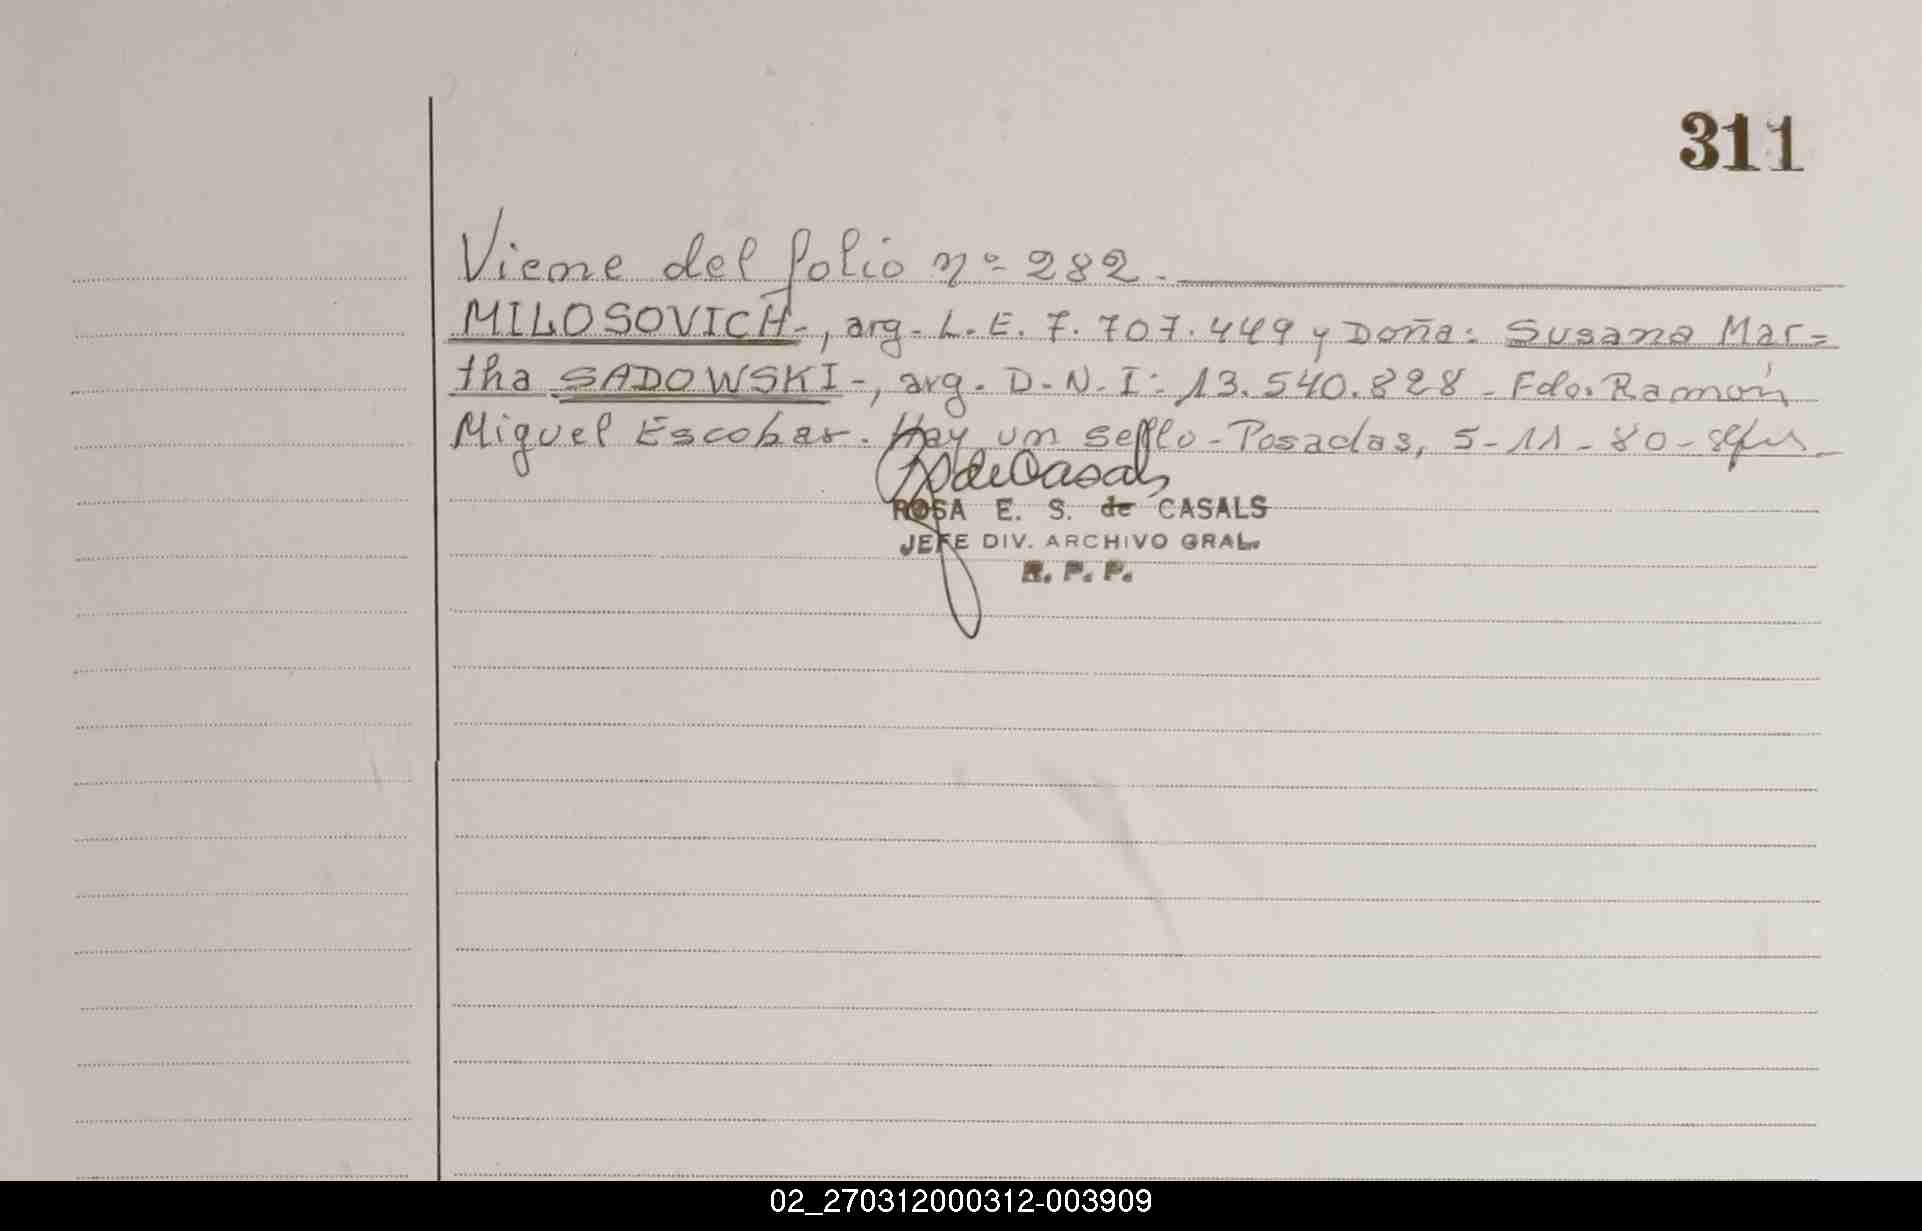 311
Viene del folio nº 282.
MILOSOVICH-, arg. L.E. 7.707.449 y Doña: Susana Mar=
tha SADOWSKI-, arg. D.N.I: 13.540.828 - Fdo. Ramón
Miguel Escobar. Hay un sello - Posadas, 5-11-80-
R de Casals
ROSA E. S. de CASALS
JEFE DIV. ARCHIVO GRAL.
R. P. P.
02_270312000312-003909